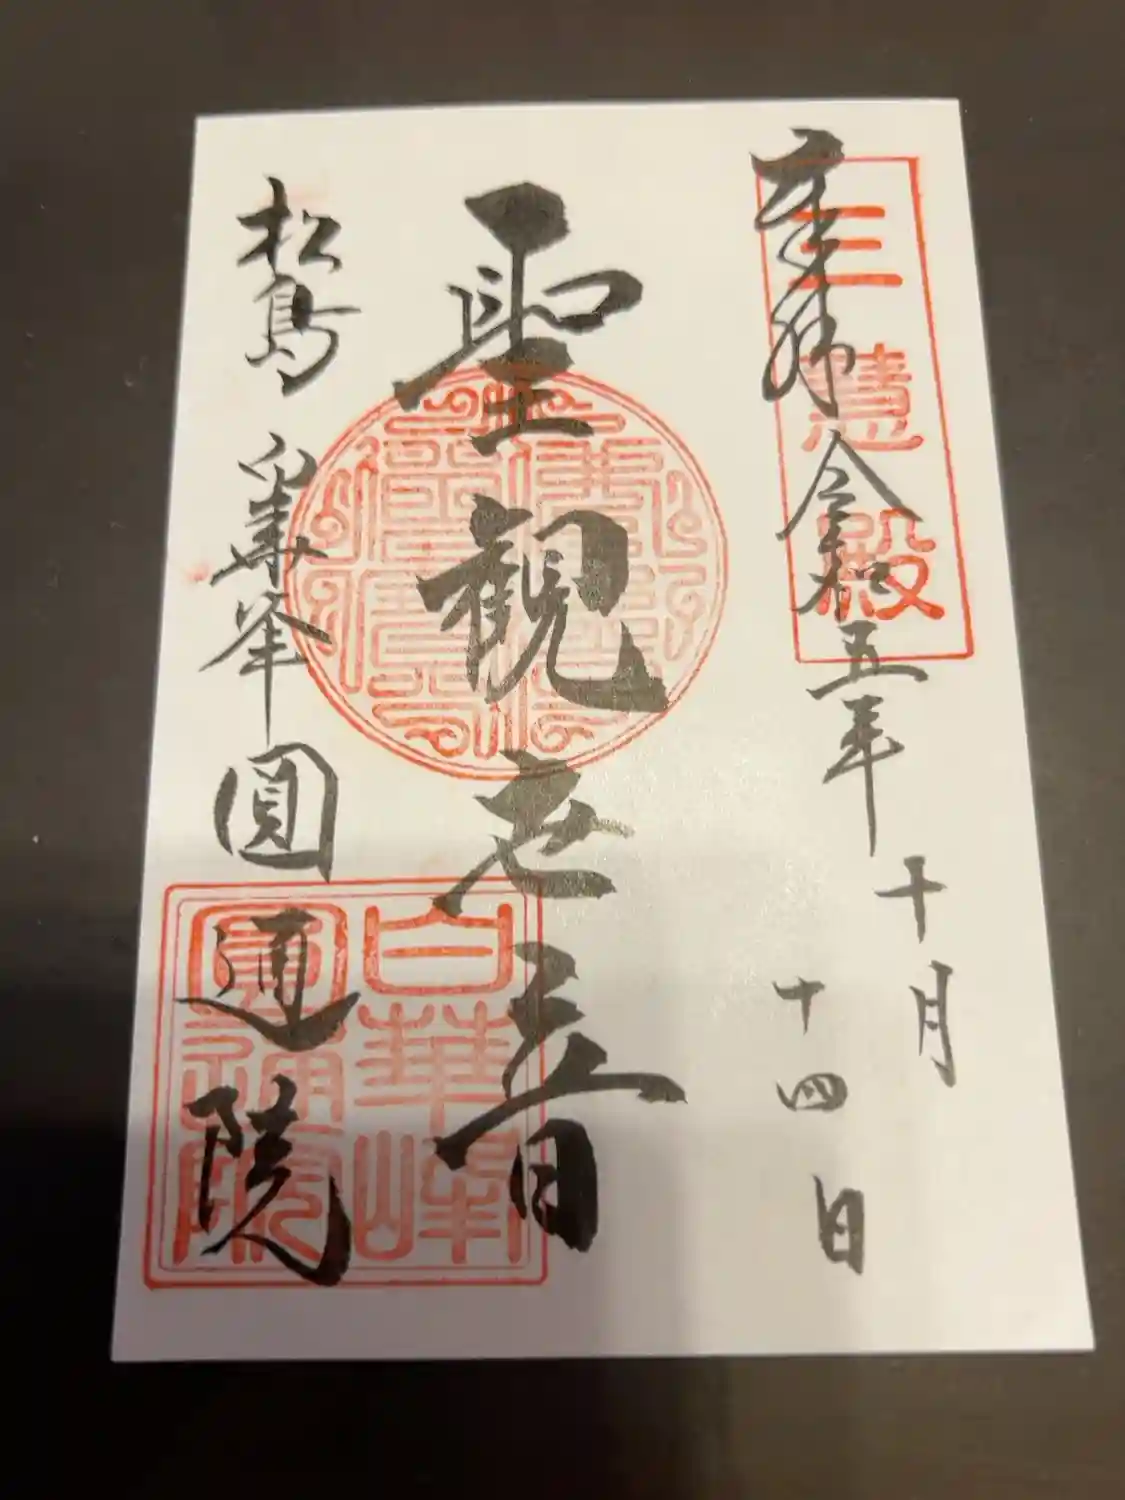 奉拝 令和五年
十月
十四日
三慧殿
聖観世音
松島 白華峰 圓通院
白華峰
圓通院